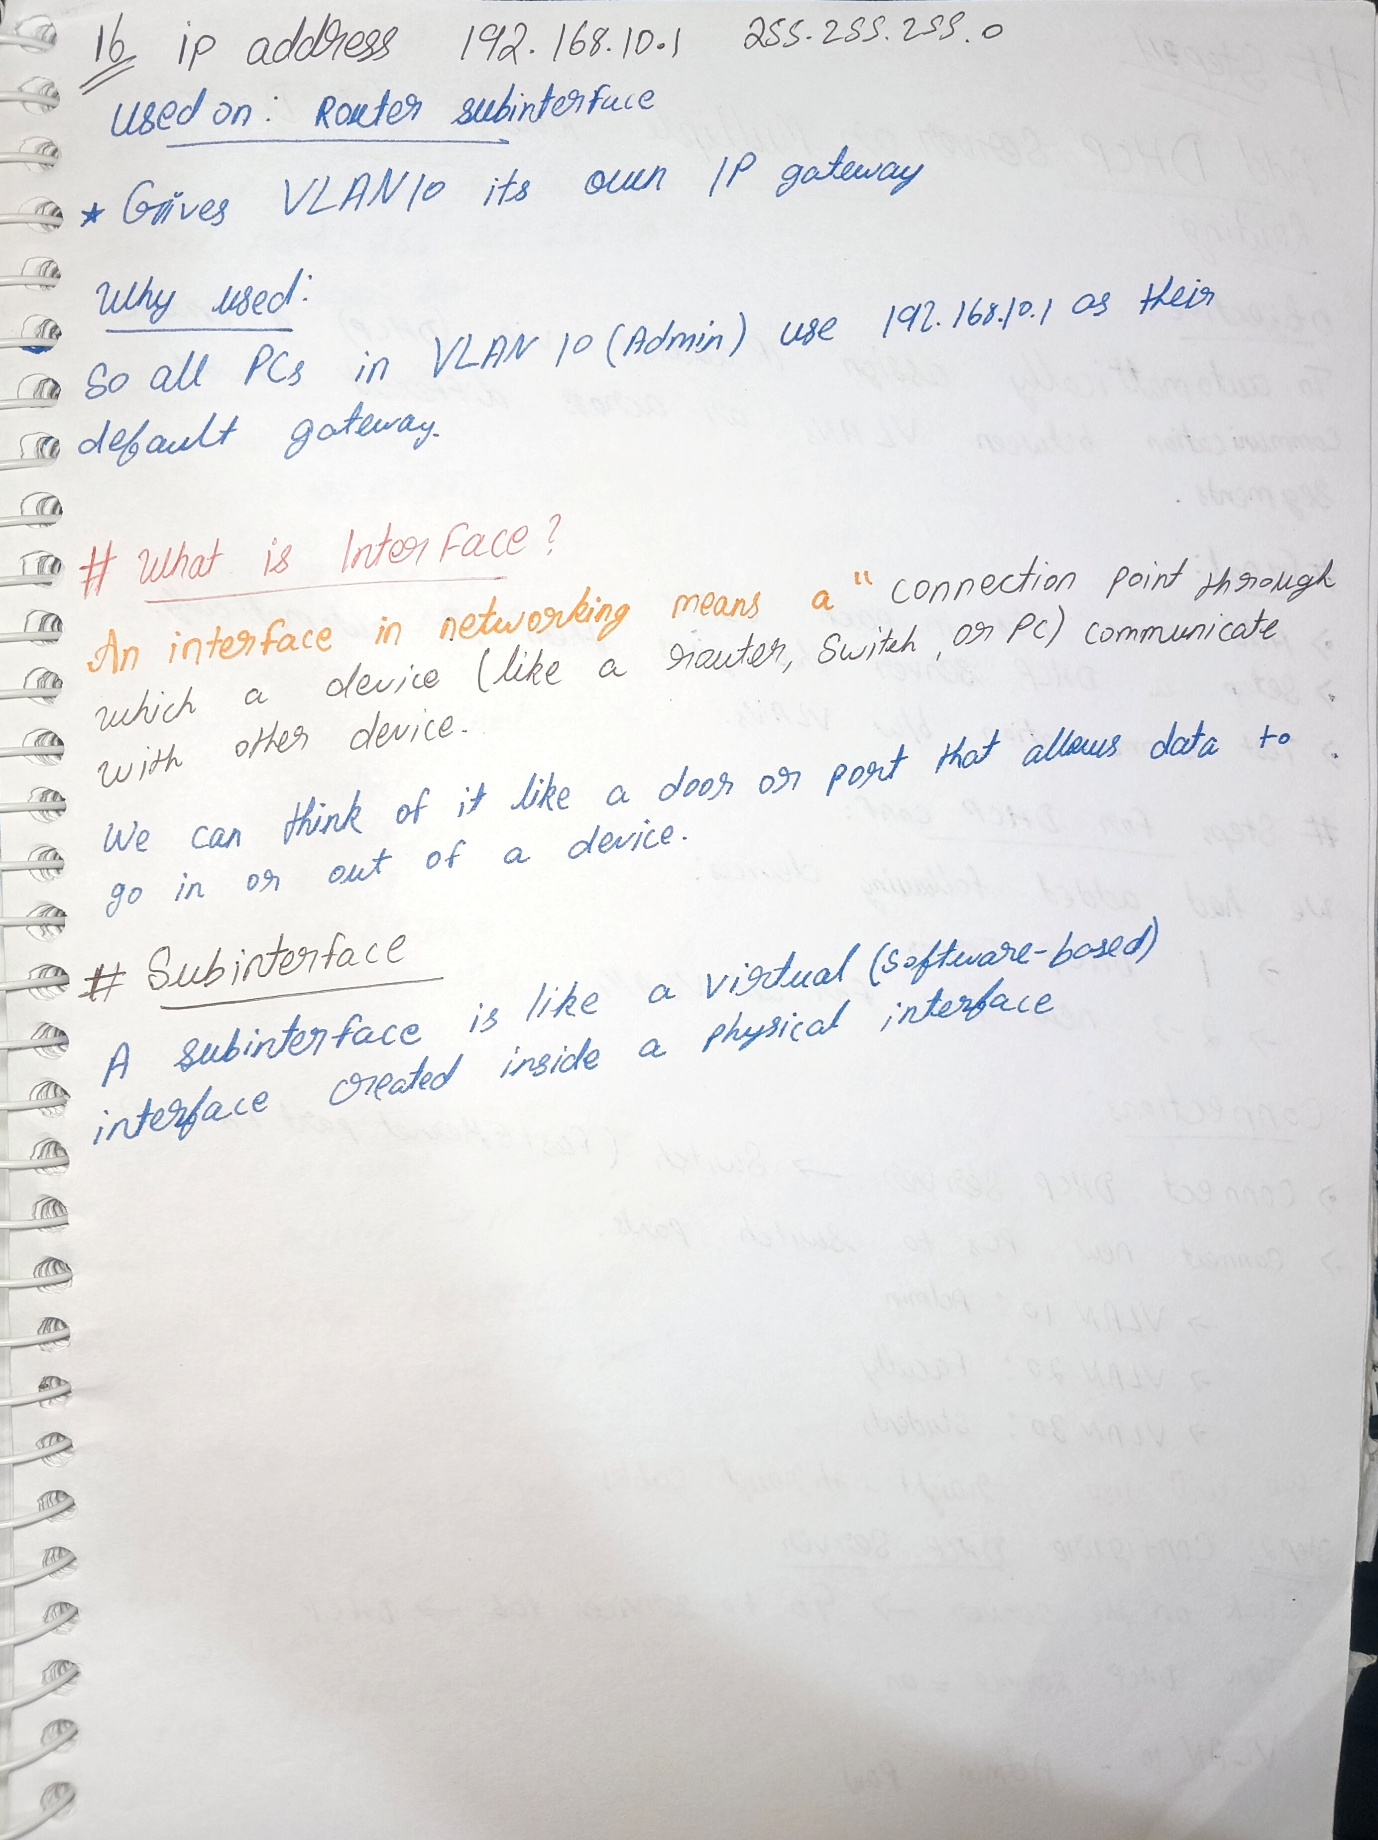 16 ip address 192.168.10.1 255.255.255.0
Used on: Router subinterface
* Gives VLAN10 its own IP gateway
Why used:
So all PCs in VLAN 10 (Admin) use 192.168.10.1 as their
default gateway.
# What is Interface?
An interface in networking means a " connection point through
which a device (like a router, Switch, or PC) communicate
with other device.
We can think of it like a door or port that allows data to
go in or out of a device.
# Subinterface
A subinterface is like a virtual (software-based)
interface created inside a physical interface